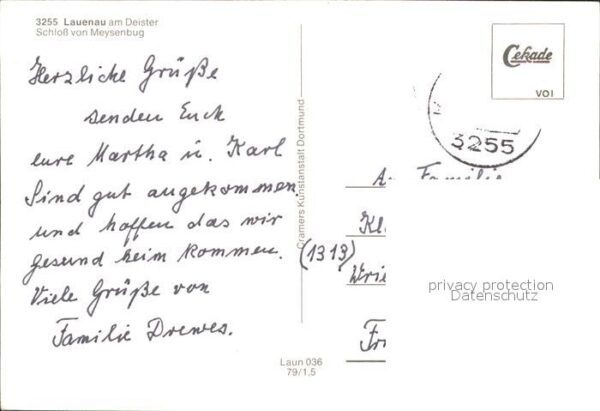 3255 Lauenau am Deister
Schloß von Meysenbug
Herzliche Grüße
senden Euch
eure Martha u. Karl
Sind gut angekommen.
und hoffen das wir
gesund heim kommen.
Viele Grüße von
Familie Drewes.
Cramers Kunstanstalt Dortmund
Laun 036
79/1,5
Cekade
VO I
3255
An Familie
Kl
(1313)
Wrie
Fr
privacy protection
Datenschutz